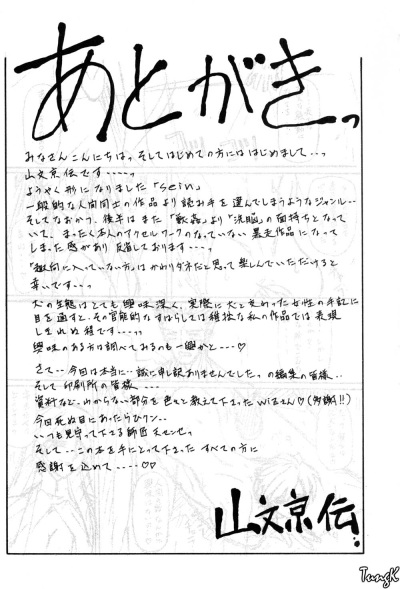 あとがきっ
みなさんこんにちはっ、そしてはじめての方にははじめまして…っ
山文京伝です----っ
ようやく形になりました「Sein」
一般的な人間同士の作品より読み手を選んでしまうようなジャンル…
そしてなおかつ、後半はまた「獣姦」より「洗脳」の面持ちとなって
いて、まったく本人のアクセルワークのなっていない暴走作品になって
しまった感があり 反省しております---っ
「趣向に入っていない方」はかわりダネだと思って楽しんでいただけると
幸いです---っ
犬の生態はとても興味深く、実際に犬と交わった女性の手記に
目を通すと、その官能的なすばらしさは稚拙な私の作品では表現
しきれぬ程です---っっ
興味のある方は調べてみるのも一興かと---♡
さて・・今回は本当に…誠に申し訳ありませんでしたっの編集の皆様・・
そして印刷所の皆様---
資料など…わからない部分を色々と教えて下さったWizさん♡(感謝!!)
今回死ぬ目にあったらびクン・・
いつも見守って下さる師匠
そして…この本を手にとって下さったすべての方に
感謝を込めて----♡♡
山文京伝
TungK